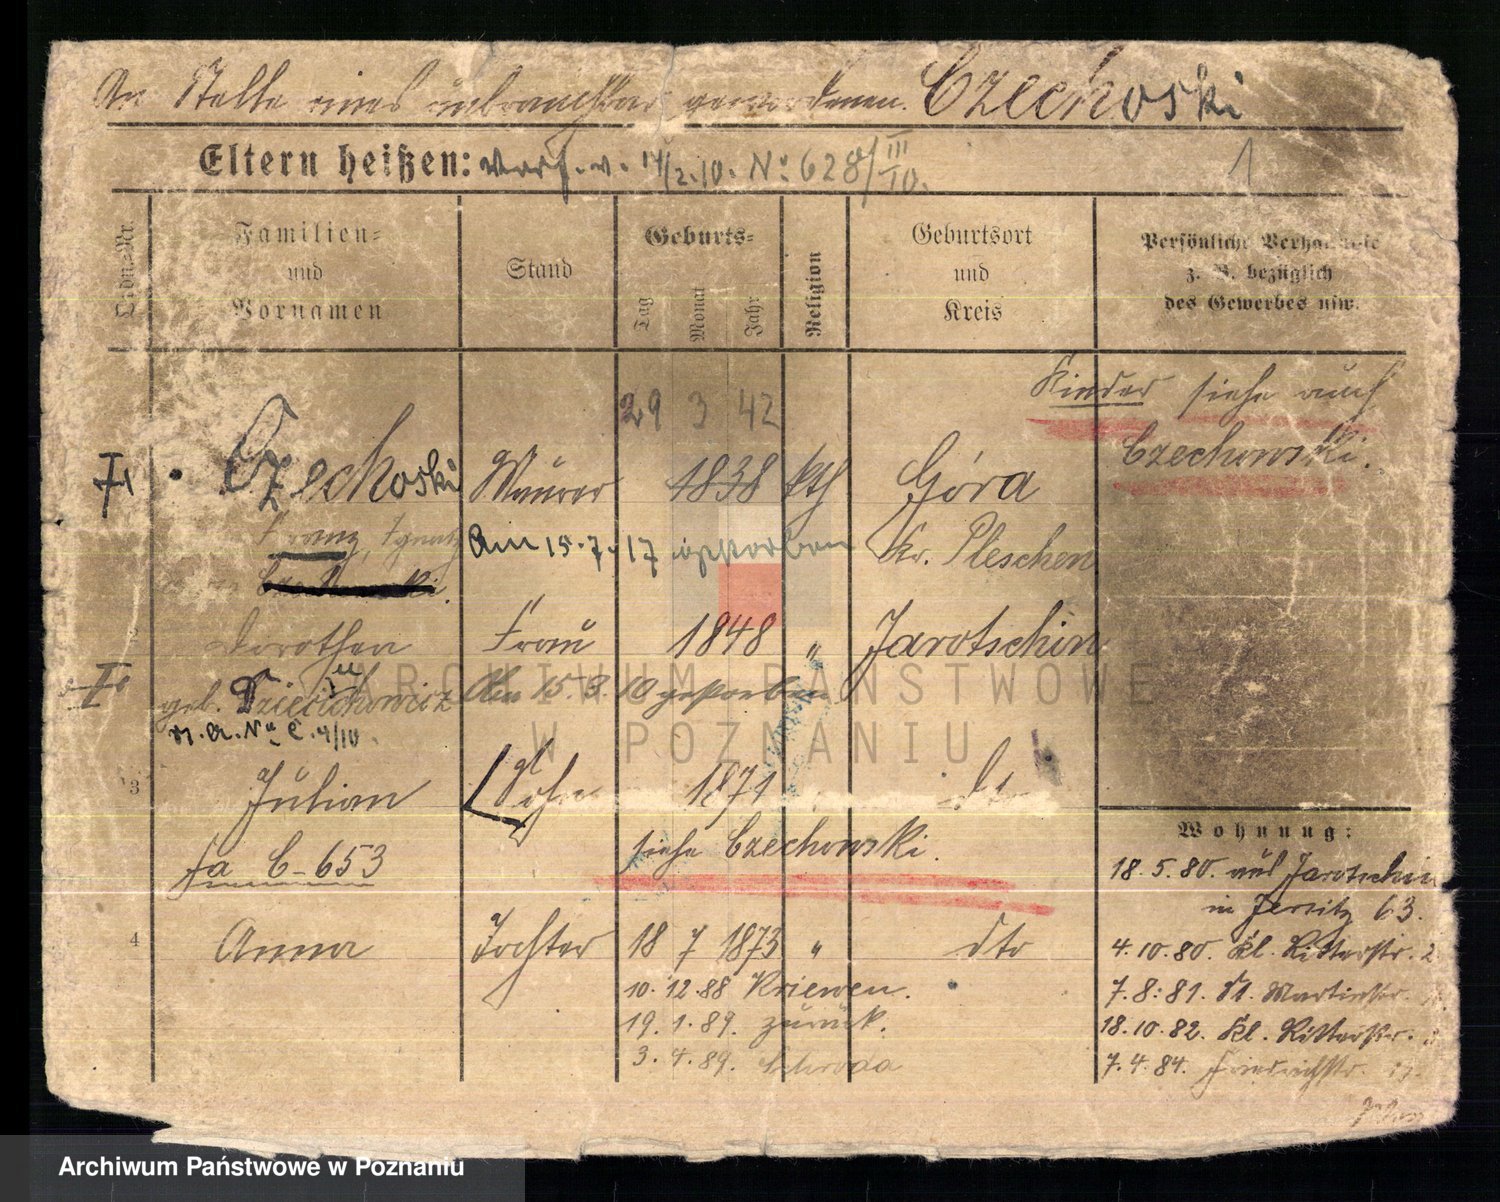 An Stelle eines unbrauchbar gewordenen. Czechoski
Eltern heißen: Verf. v. 14/2.10. No. 628/III 10.
1
Ordn.-Nr.
Familien- und Vornamen
Stand
Geburts-
Tag Monat Jahr
Religion
Geburtsort und Kreis
Persönliche Verhältnisse
z. B. bezüglich
des Gewerbes usw.
Kinder siehe auch
Czechowski.
29 3 42
Czechoski Maurer 1838 kth Góra
Franz, Ignatz Am 15.7.17 gestorben Kr. Pleschen
Dorothea Frau 1848 " Jarotschin
geb. Am 15.3.10 gestorben
No C.4/10.
3 Julian Sohn 1871 dto
siehe Czechowski.
fa C-653
4 Anna Tochter 18 7 1873 " dto
10.12.88 Kriewen.
19.1.89. zurück.
3.4.89. Schroda
Wohnung:
18.5.80. aus Jarotschin
in Jersitz 63.
4.10.80. Kl. Ritterstr. 2
7.8.81. St. Martinstr.
18.10.82. Kl. Ritterstr.
7.4.84. Friedrichstr.
ARCHIWUM PAŃSTWOWE
W POZNANIU
Archiwum Państwowe w Poznaniu